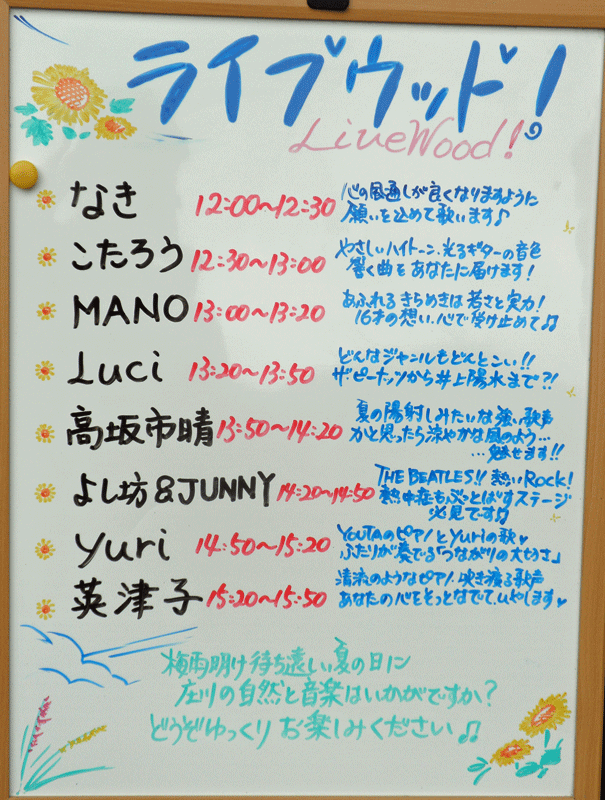 ライブウッド!
LiveWood!
なき 12:00〜12:30 心の風通しが良くなりますように
願いを込めて歌います♪
こたろう 12:30〜13:00 やさしいハイトーン、光るギターの音色
響く曲をあなたに届けます!
MANO 13:00〜13:20 あふれるきらめきは若さと実力!
16才の想い、心で受け止めて♫
Luci 13:20〜13:50 どんなジャンルもどんとこい!!
ザ・ピーナッツから井上陽水まで?!
高坂市晴 13:50〜14:20 夏の陽射しみたいな強い歌声
かと思ったら涼やかな風のよう…
…魅せます!!
よし坊&JUNNY 14:20〜14:50 THE BEATLES!! 熱いRock!
熱中症もぶっとばすステージ
必見です♫
yuri 14:50〜15:20 YOUTAのピアノとYuriの歌♥
ふたりが奏でる「つながりの大切さ」
英津子 15:20〜15:50 清流のようなピアノ、吹き渡る歌声
あなたの心をそっとなでて、いやします♥
梅雨明け待ち遠しい夏の日に
庄川の自然と音楽はいかがですか?
どうぞゆっくりお楽しみください♫